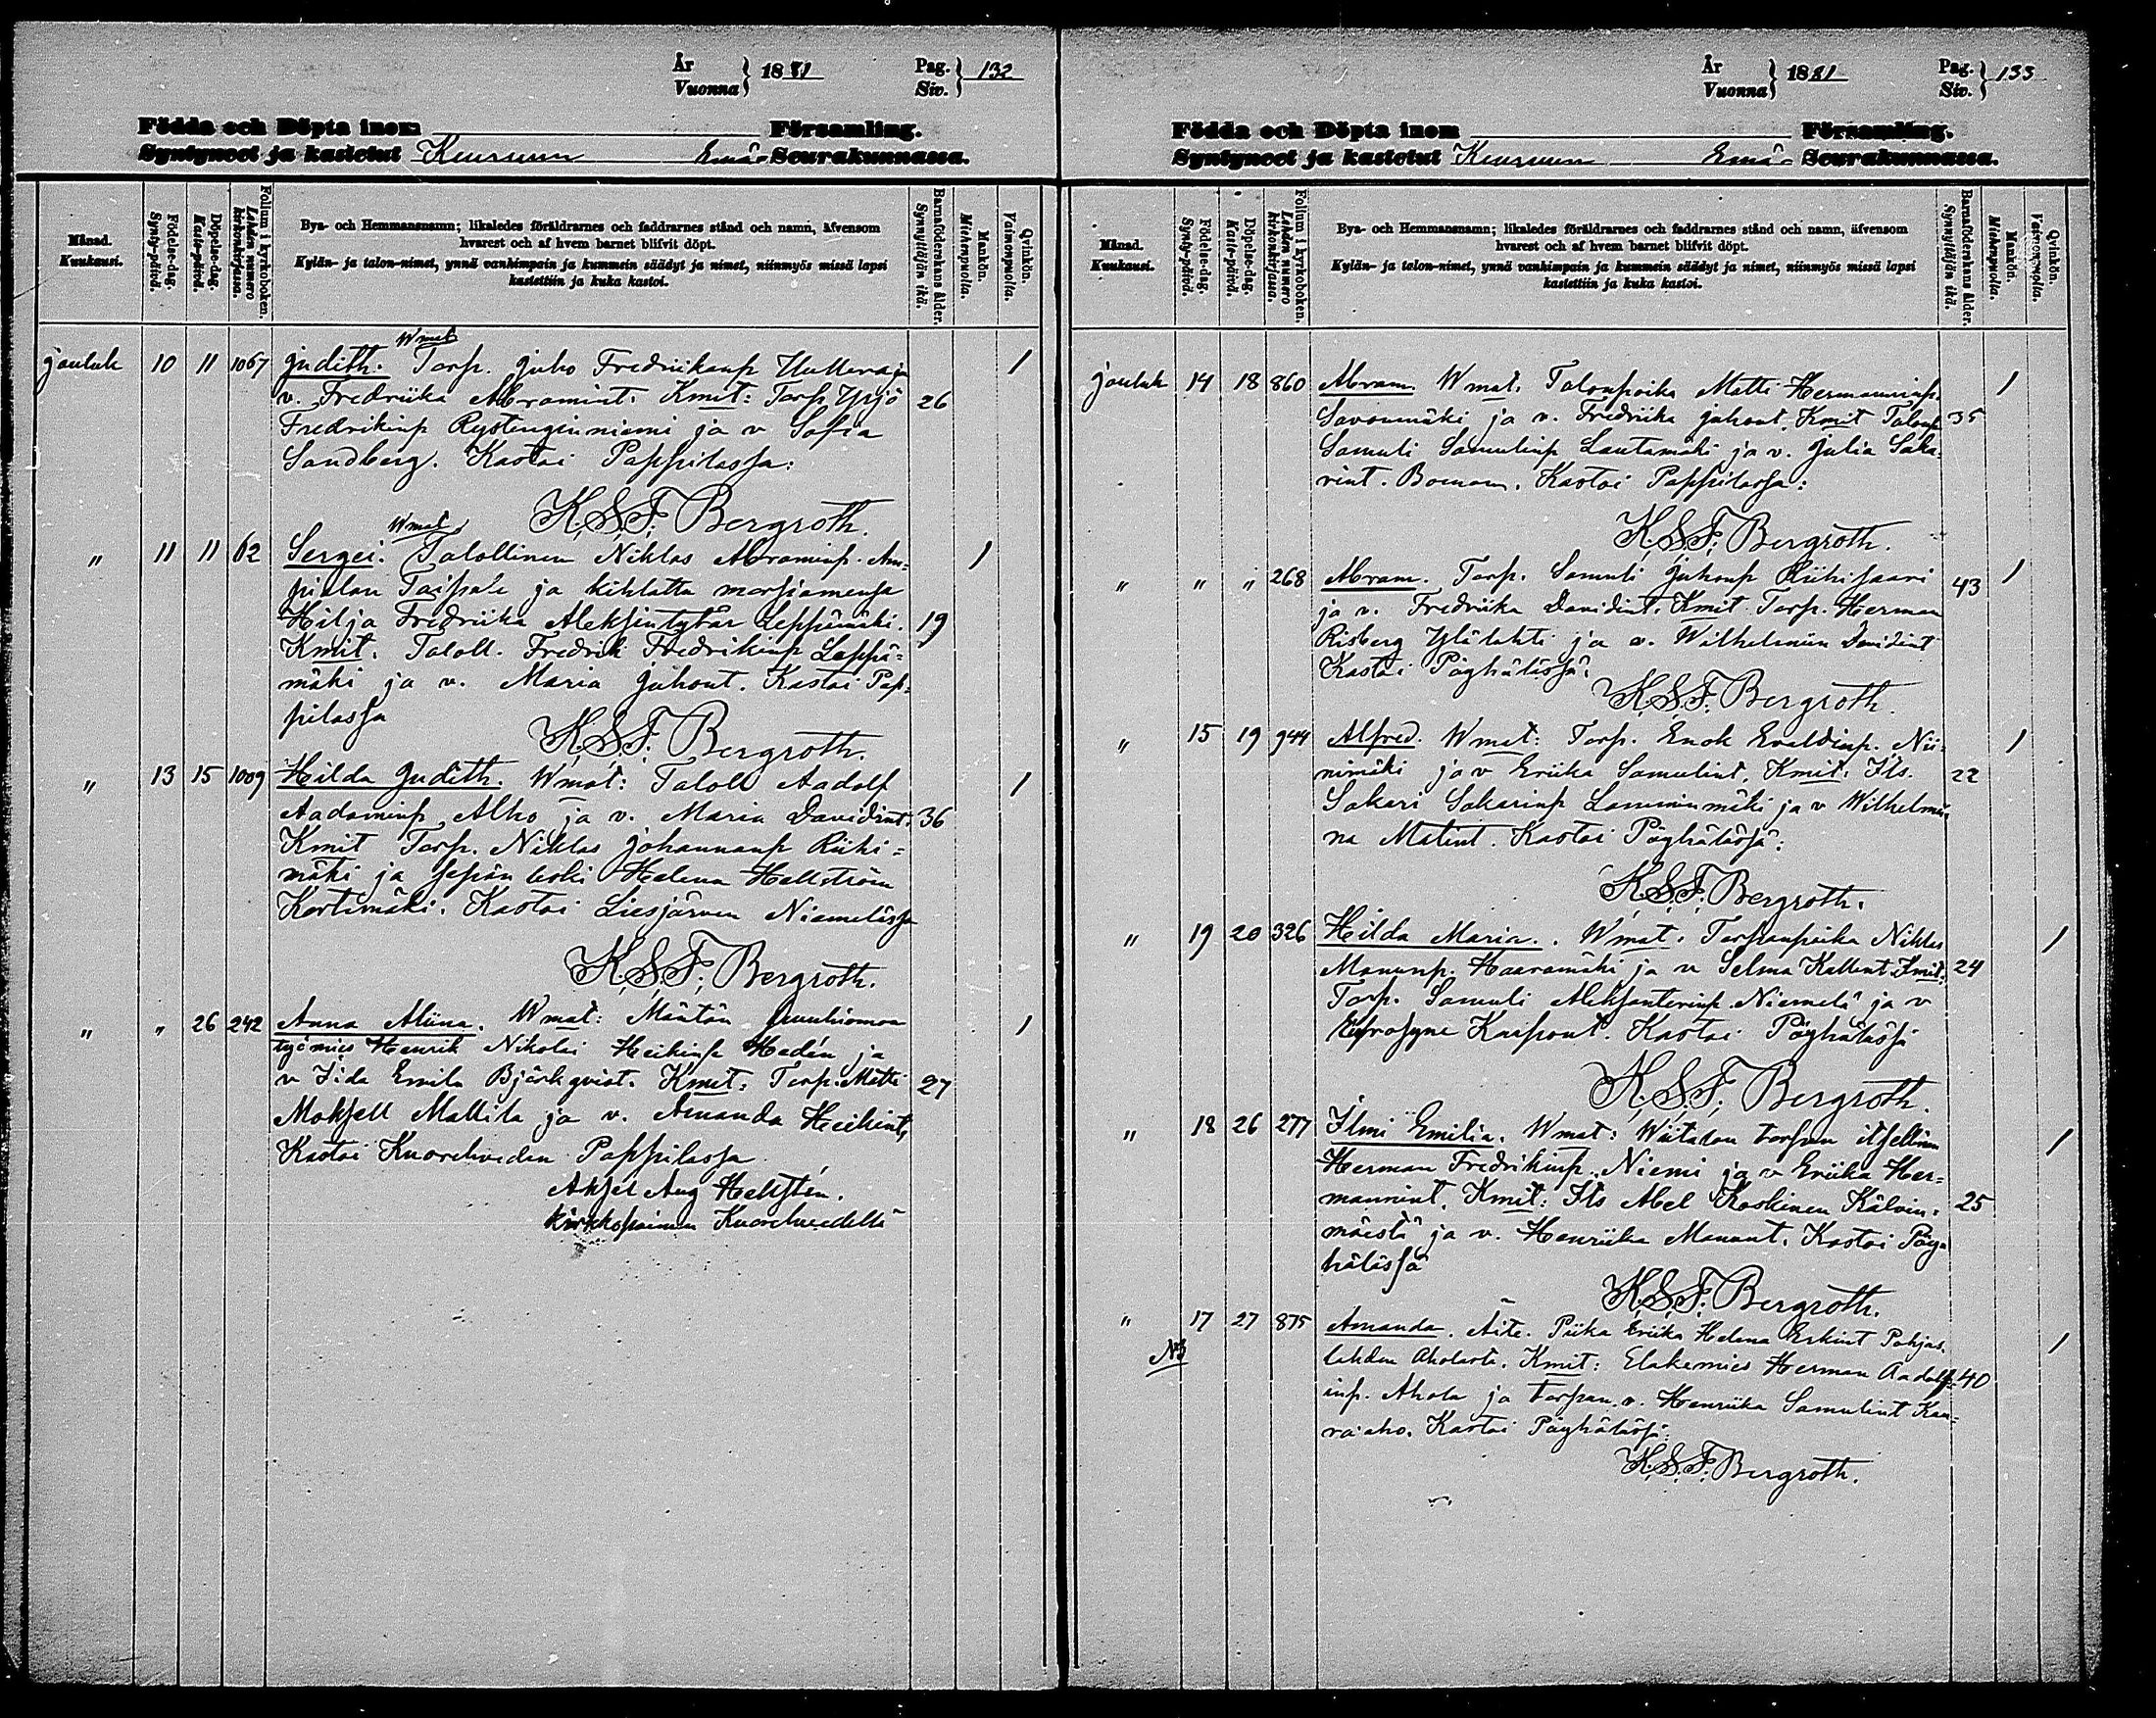 År
Vuonna } 1881
Pag.
Siv. } 132
Födda och Döpta inom Församling.
Syntyneet ja kastetut Keuruun Emä- Seurakunnassa.
Månad.
Kuukausi.
Födelse-dag.
Synty-päivä.
Döpelse-dag.
Kaste-päivä.
Folium i kyrkoboken.
Lehden numero kirkonkirjassa.
Bya- och Hemmansnamn; likaledes föräldrarnes och faddrarnes stånd och namn, äfvensom
hvarest och af hvem barnet blifvit döpt.
Kylän- ja talon-nimet, ynnä vanhimpain ja kummein säädyt ja nimet, niinmyös missä lapsi
kastettiin ja kuka kastoi.
Barnaföderskans ålder.
Synnyttäjän ikä.
Mankön.
Miehenpuolia.
Qvinkön.
Vaimonpuolia.
Wmat
jouluk 10 11 1067 Judith. Torp. Juho Fredriikanp ja 1
v. Fredriika Abramint. Kmit: Torp Yrjö 26
Fredrikinp Rystenginniemi ja v Sofia
Sandberg. Kastoi Pappilassa:
K.S.F. Bergroth.
Wmat
" 11 11 62 Sergei. Talollinen Niklas Abraminp. Am- 1
pialan Taipale ja kihlattu morsiamensa
Hilja Fredriika Aleksintytär Leppämäki. 19
Kmit. Taloll. Fredrik Fredrikinp Leppä-
mäki ja v. Maria Juhont. Kastoi Pap-
pilassa
K.S.F. Bergroth.
" 13 15 1009 Hilda Judith. Wmat: Taloll Aadolf 1
Aadaminp Alho ja v. Maria Davidint. 36
Kmit Torp. Niklas Johannanp Riihi-
mäki ja sepän leski Helena Hellström
Kortimäki. Kastoi Liesjärven Niemelässä
K.S.F. Bergroth.
" " 26 242 Anna Aliina. Wmat: Mäntän puuhiomon 1
työmies Henrik Nikolai Heikinp Hedén ja
v Iida Emila Björkqvist. Kmit: Torp. Matti 27
Moksell Mattila ja v. Amanda Heikint,
Kastoi Kuoreveden Pappilassa
Aksel Aug Hellstén.
kirkkopaimen Kuorehvedellä
År
Vuonna } 1881
Pag.
Siv. } 133
Födda och Döpta inom Församling.
Syntyneet ja kastetut Keuruun Emä- Seurakunnassa.
Månad.
Kuukausi.
Födelse-dag.
Synty-päivä.
Döpelse-dag.
Kaste-päivä.
Folium i kyrkoboken.
Lehden numero kirkonkirjassa.
Bya- och Hemmansnamn; likaledes föräldrarnes och faddrarnes stånd och namn, äfvensom
hvarest och af hvem barnet blifvit döpt.
Kylän- ja talon-nimet, ynnä vanhimpain ja kummein säädyt ja nimet, niinmyös missä lapsi
kastettiin ja kuka kastoi.
Barnaföderskans ålder.
Synnyttäjän ikä.
Mankön.
Miehenpuolia.
Qvinkön.
Vaimonpuolia.
jouluk 14 18 860 Abram. Wmat. Talonpoika Matti Hermanninp. 1
Savonmäki ja v. Fredriika Juhont. Kmit Talonp 35
Samuli Samulinp Lautamäki ja v. Julia Saka-
rint. Boman. Kastoi Pappilassa:
K.S.F. Bergroth.
" " " 268 Abram. Torp. Samuli Juhonp Riihisaari 43 1
ja v. Fredriika Davidint. Kmit Torp. Herman
Risberg Ylälehti ja v. Wilhelmiin Davidint
Kastoi Päyhälässä:
K.S.F. Bergroth.
" 15 19 944 Alfred. Wmat: Torp. Enok Evaldinp. Nii- 1
nimäki ja v Eriika Samulint, Kmit. Its. 22
Sakari Sakarinp Lamminmäki ja v Wilhelmii-
na Matint. Kastoi Päyhälässä:
K.S.F. Bergroth.
" 19 20 326 Hilda Maria. Wmat. Torpanpoika Niklas 1
Manunp. Haaramäki ja v Selma Kallent. Kmit: 24
Torp. Samuli Aleksanterinp Niemelä ja v
Efrosyne Kaapont. Kastoi Päyhälässä
K.S.F. Bergroth.
" 18 26 277 Ilmi Emilia. Wmat: Wiitalan torpan itsellinen 1
Herman Fredrikinp. Niemi ja v Eriika Her-
mannint. Kmit: Its Abel Koskinen Kälvin- 25
mäestä ja v. Henriika Manunt. Kastoi Päy-
hälässä
K.S.F. Bergroth.
" 17 27 875 Amanda. Äite. Piika Eriika Helena Erkint Pohjas- 1
NB lahden Aholasta. Kmit: Elakemies Herman Aadolf- 40
inp. Ahola ja torpan v. Henriika Samulint Kau-
raaho. Kastoi Päyhälässä:
K.S.F. Bergroth.